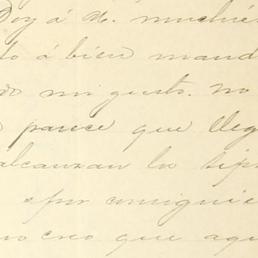 Doy á U. muchí
do á bien mand
do mi gusto. no
parece que lleg
alcanzan lo tip
por consiguie
no creo que aqu